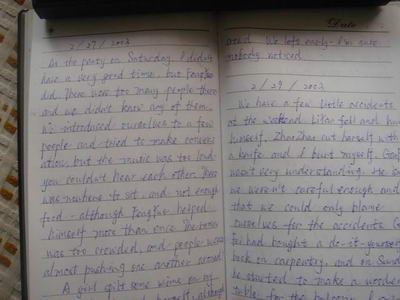 2/27/2003
At the party on Saturday I didn't
have a very good time, but Fangfan
did. There were too many people there
and we didn't know any of them.
We introduced ourselves to a few
people and tried to make convers
ation, but the music was too loud
you couldn't hear each other. There
was nowhere to sit, and not enough
food - although Fangfan helped
himself more than once. The
was too crowded, and people were
almost pushing one another around
A girl spilt some wine on my
although
Date
We left early - I'm sure
nobody noticed.
2/29/2003
We have a few little accidents
at the weekend. Lilan fell and hurt
himself, ZhaoZhao cut herself with
a knife and I burnt myself.
wasn't very understanding. He said
we weren't careful enough and
that we could only blame
ourselves for the accidents.
had bought a do-it-yourself
book on carpentry, and on Sund
he started to make a wooden
table for the